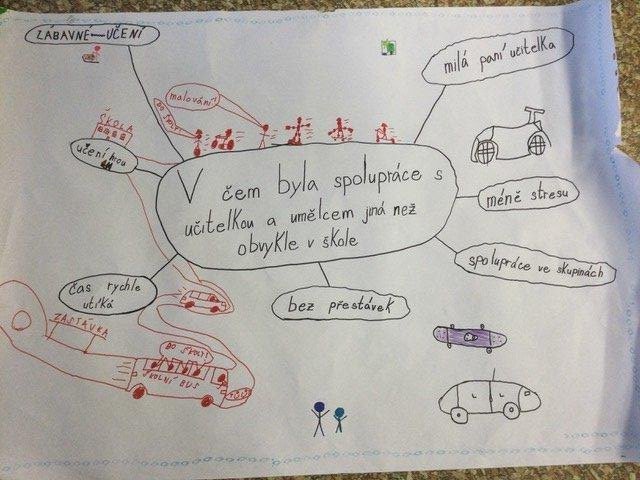 ZÁBAVNÉ-UČENÍ
milá paní učitelka
malování!
DO ŠKOLY!
ŠKOLA
učení hrou
V čem byla spolupráce s
učitelkou a umělcem jiná než
obvykle v škole
méně stresu
spolupráce ve skupinách
čas rychle
utíká
bez přestávek
ZASTÁVKA
DO ŠKOLY!
ŠKOLNÍ BUS